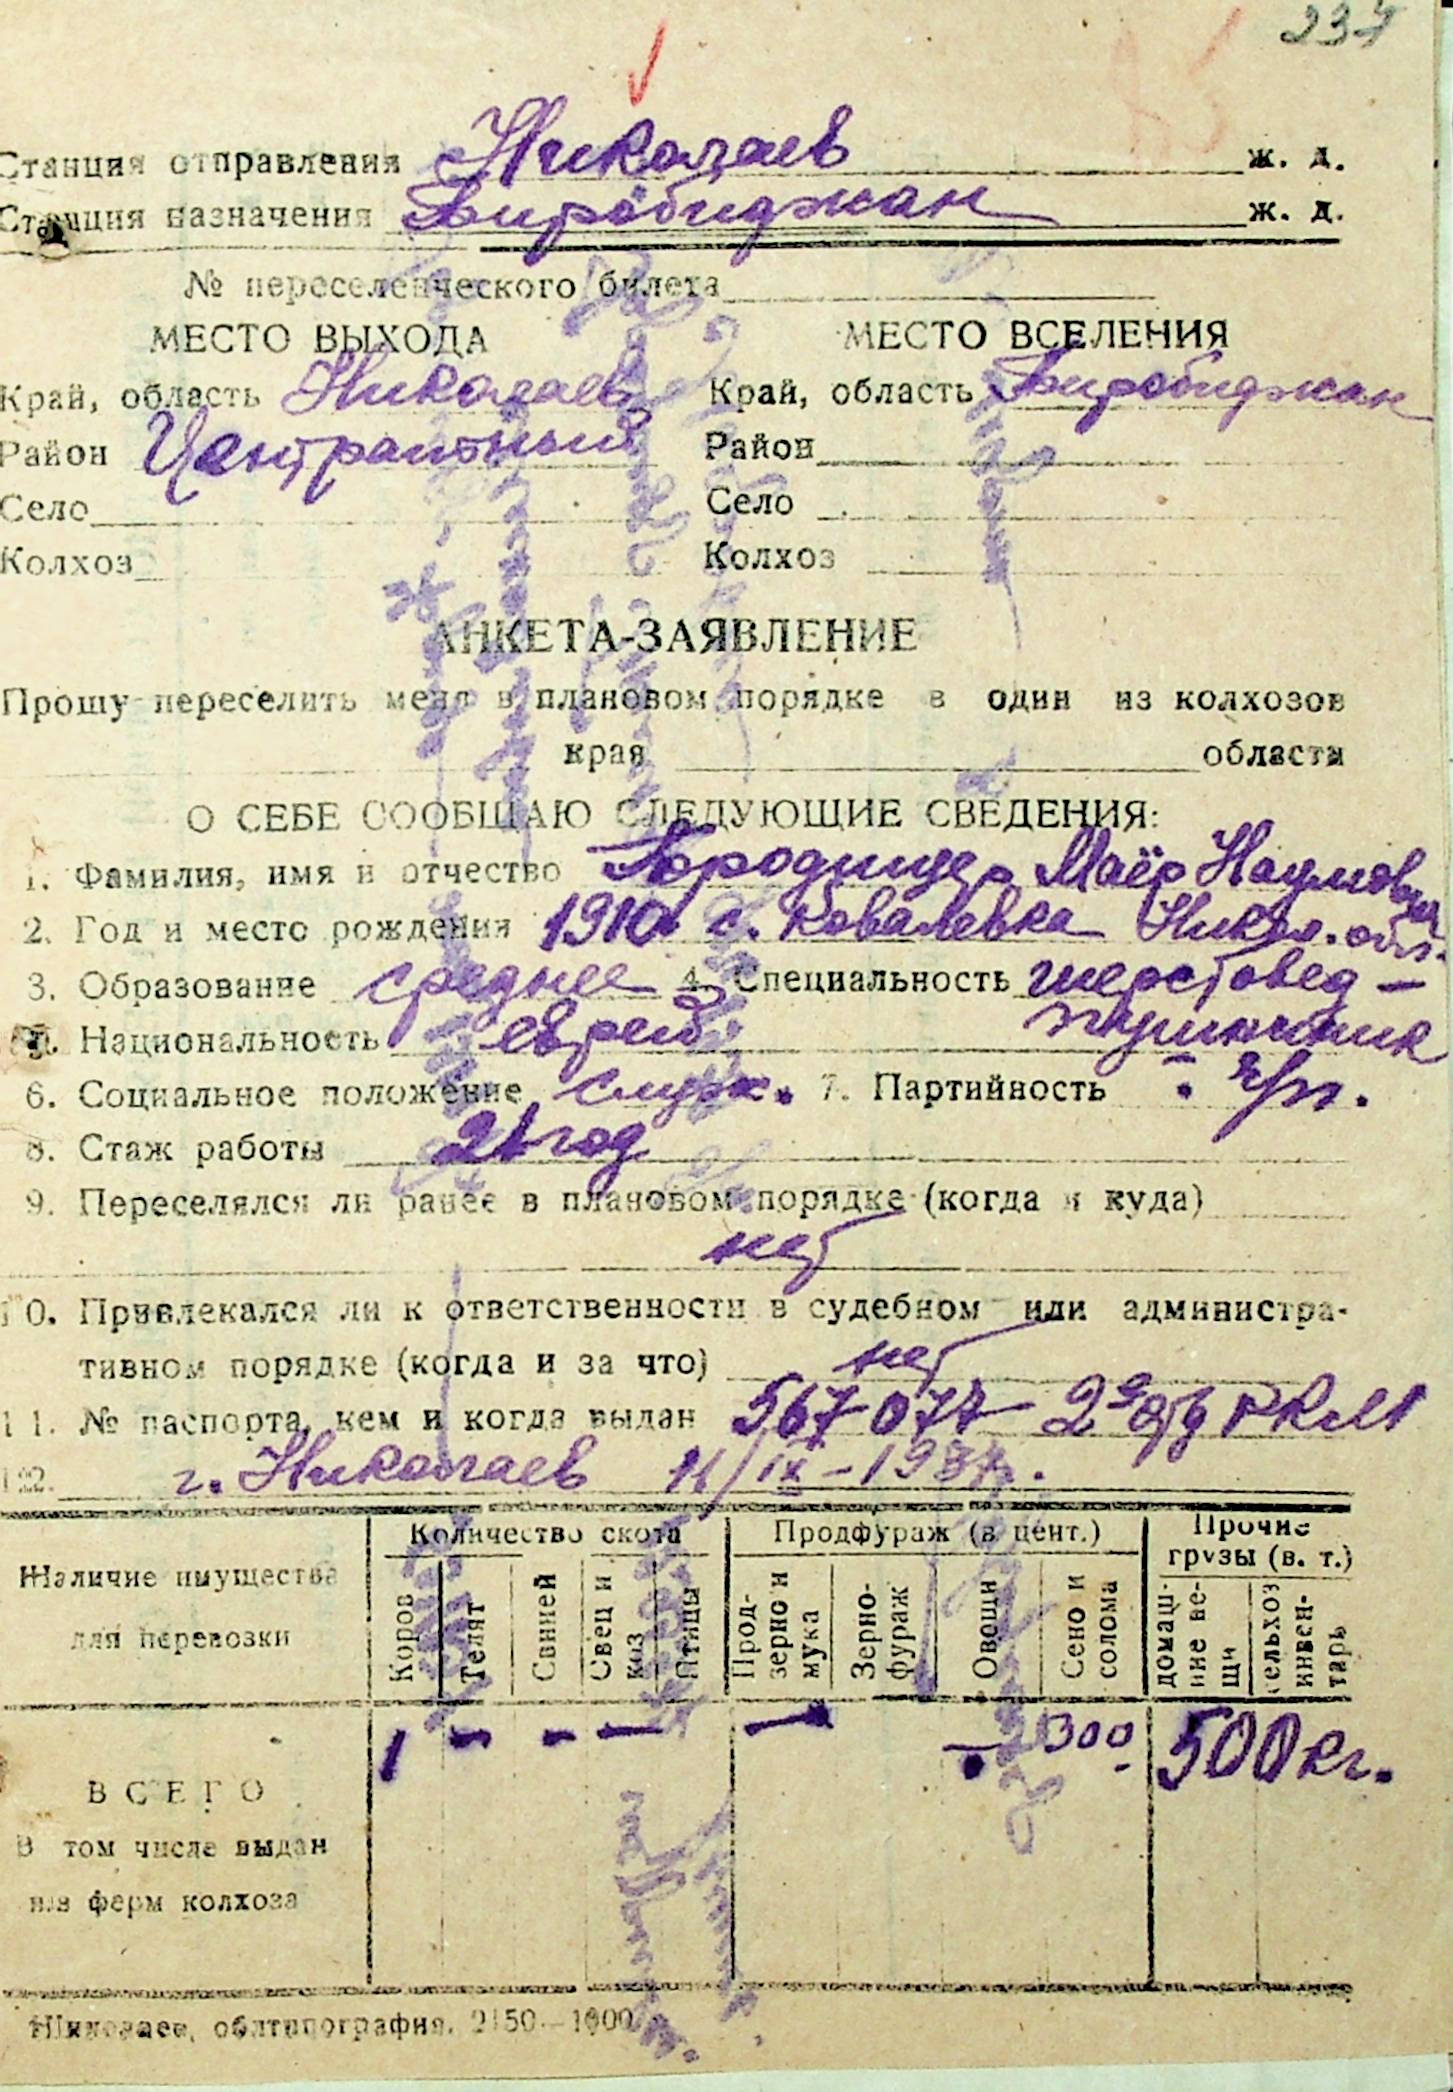 237
Станция отправления Николаев ж. д.
Станция назначения Биробиджан ж. д.
№ переселенческого билета
МЕСТО ВЫХОДА МЕСТО ВСЕЛЕНИЯ
Край, область Николаев Край, область Биробиджан
Район Центральный Район
Село Село
Колхоз Колхоз
АНКЕТА-ЗАЯВЛЕНИЕ
Прошу переселить меня в плановом порядке в один из колхозов
края области
О СЕБЕ СООБЩАЮ СЛЕДУЮЩИЕ СВЕДЕНИЯ:
1. Фамилия, имя и отчество Маёр Наумович
2. Год и место рождения 1910 с. Ковалевка Никол. обл.
3. Образование среднее 4. Специальность шерстовед –
5. Национальность еврей пушник
6. Социальное положение служ. 7. Партийность
8. Стаж работы 21 год
9. Переселялся ли ранее в плановом порядке (когда и куда)
нет
10. Привлекался ли к ответственности в судебном или администра-
тивном порядке (когда и за что) нет
11. № паспорта, кем и когда выдан 567077 2е отд РКМ
12. г. Николаев 11/IX – 1937г.
Количество скота Продфураж (в цент.) Прочие
грузы (в. т.)
Наличие имущества
для перевозки
Коров Телят Свиней Свец и коз Птицы Прод-зерно и мука Зерно-фураж Овощи Сено и солома домаш-ние ве-щи сельхоз инвен-тарь
1 – – – – – 300 500 кг.
ВСЕГО
В том числе выдан
из ферм колхоза
Николаев, облтипография. 2150—1000